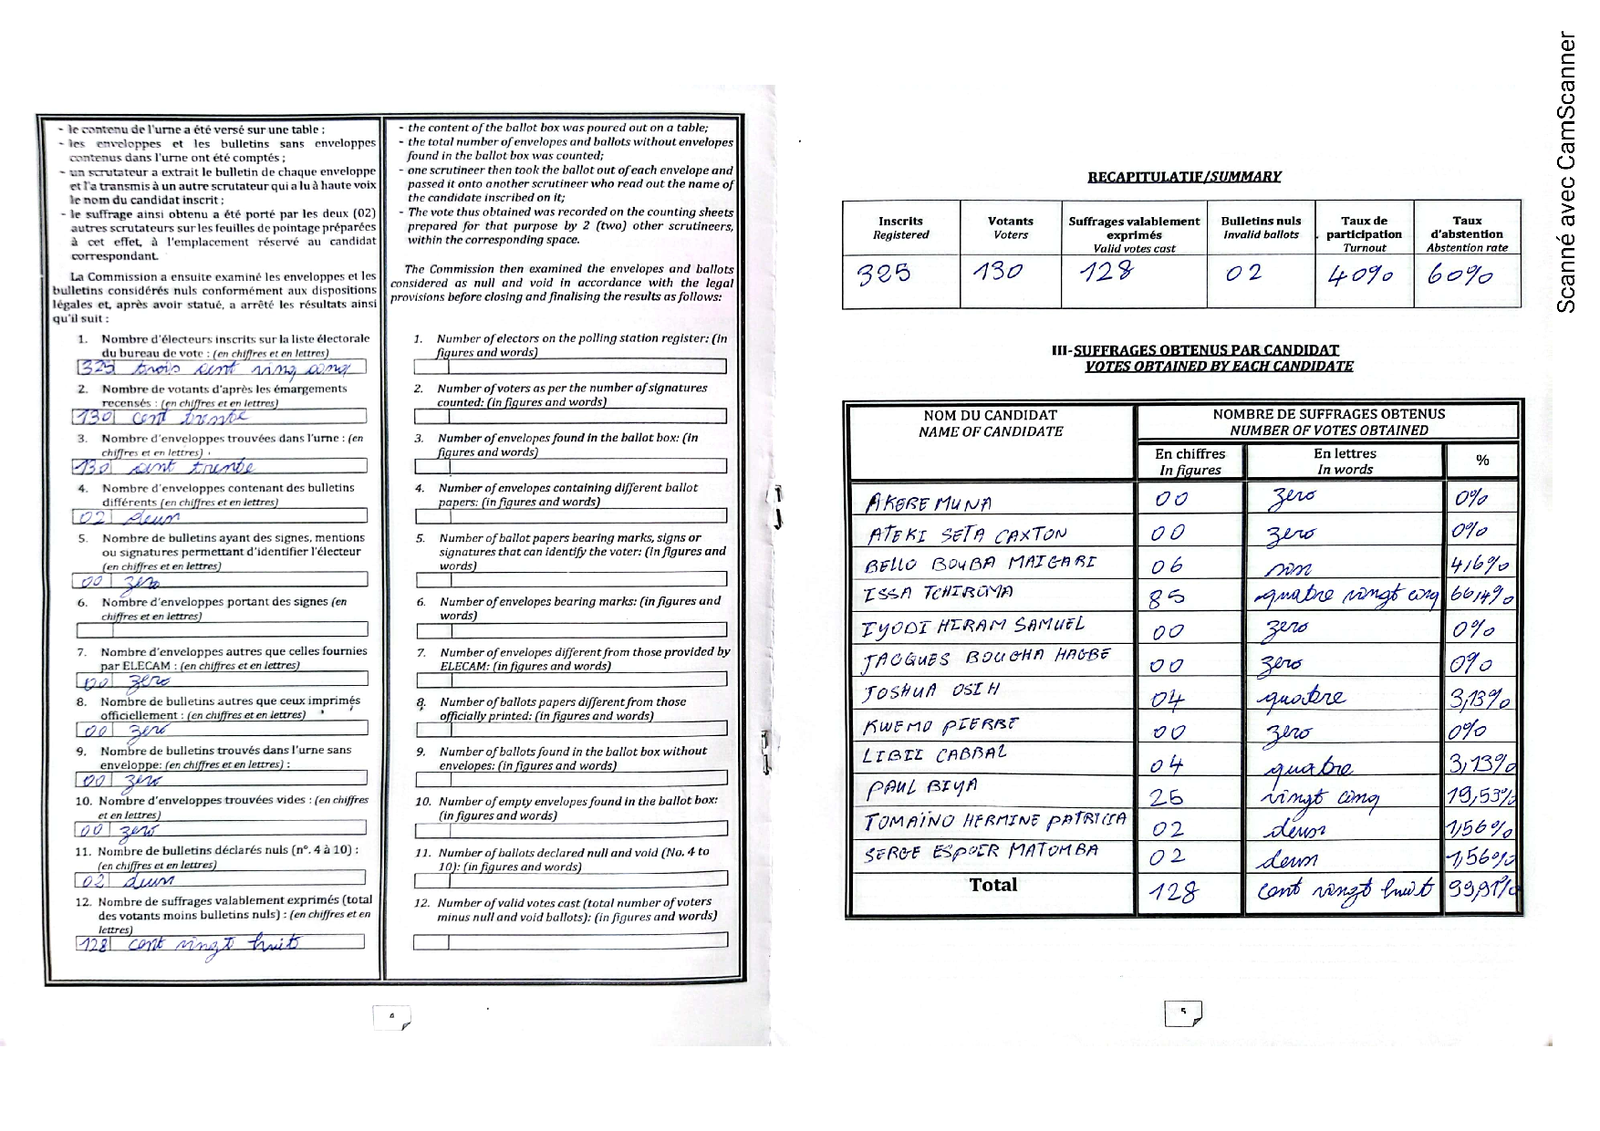 - le contenu de l'urne a été versé sur une table ;
- les enveloppes et les bulletins sans enveloppes
contenus dans l'urne ont été comptés ;
- un scrutateur a extrait le bulletin de chaque enveloppe
et l'a transmis à un autre scrutateur qui a lu à haute voix
le nom du candidat inscrit ;
- le suffrage ainsi obtenu a été porté par les deux (02)
autres scrutateurs sur les feuilles de pointage préparées
à cet effet, à l'emplacement réservé au candidat
correspondant.
La Commission a ensuite examiné les enveloppes et les
bulletins considérés nuls conformément aux dispositions
légales et, après avoir statué, a arrêté les résultats ainsi
qu'il suit :
1. Nombre d'électeurs inscrits sur la liste électorale
du bureau de vote : (en chiffres et en lettres)
325 trois cent ving cinq
2. Nombre de votants d'après les émargements
recensés : (en chiffres et en lettres)
130 cent trente
3. Nombre d'enveloppes trouvées dans l'urne : (en
chiffres et en lettres)
130 cent trente
4. Nombre d'enveloppes contenant des bulletins
différents (en chiffres et en lettres)
02 deux
5. Nombre de bulletins ayant des signes, mentions
ou signatures permettant d'identifier l'électeur
(en chiffres et en lettres)
00 zero
6. Nombre d'enveloppes portant des signes (en
chiffres et en lettres)
7. Nombre d'enveloppes autres que celles fournies
par ELECAM : (en chiffres et en lettres)
00 zero
8. Nombre de bulletins autres que ceux imprimés
officiellement : (en chiffres et en lettres)
00 zero
9. Nombre de bulletins trouvés dans l'urne sans
enveloppe: (en chiffres et en lettres) :
00 zero
10. Nombre d'enveloppes trouvées vides : (en chiffres
et en lettres)
00 zero
11. Nombre de bulletins déclarés nuls (n°. 4 à 10) :
(en chiffres et en lettres)
02 deux
12. Nombre de suffrages valablement exprimés (total
des votants moins bulletins nuls) : (en chiffres et en
lettres)
128 cent vingt huit
- the content of the ballot box was poured out on a table;
- the total number of envelopes and ballots without envelopes
found in the ballot box was counted;
- one scrutineer then took the ballot out of each envelope and
passed it onto another scrutineer who read out the name of
the candidate inscribed on it;
- The vote thus obtained was recorded on the counting sheets
prepared for that purpose by 2 (two) other scrutineers,
within the corresponding space.
The Commission then examined the envelopes and ballots
considered as null and void in accordance with the legal
provisions before closing and finalising the results as follows:
1. Number of electors on the polling station register: (In
figures and words)
2. Number of voters as per the number of signatures
counted: (in figures and words)
3. Number of envelopes found in the ballot box: (in
figures and words)
4. Number of envelopes containing different ballot
papers: (in figures and words)
5. Number of ballot papers bearing marks, signs or
signatures that can identify the voter: (In figures and
words)
6. Number of envelopes bearing marks: (in figures and
words)
7. Number of envelopes different from those provided by
ELECAM: (in figures and words)
8. Number of ballots papers different from those
officially printed: (in figures and words)
9. Number of ballots found in the ballot box without
envelopes: (in figures and words)
10. Number of empty envelopes found in the ballot box:
(in figures and words)
11. Number of ballots declared null and void (No. 4 to
10): (in figures and words)
12. Number of valid votes cast (total number of voters
minus null and void ballots): (in figures and words)
4
RECAPITULATIF/SUMMARY
Inscrits Votants Suffrages valablement Bulletins nuls Taux de Taux
Registered Voters exprimés Invalid ballots participation d'abstention
Valid votes cast Turnout Abstention rate
325 130 128 02 40% 60%
III-SUFFRAGES OBTENUS PAR CANDIDAT
VOTES OBTAINED BY EACH CANDIDATE
NOM DU CANDIDAT NOMBRE DE SUFFRAGES OBTENUS
NAME OF CANDIDATE NUMBER OF VOTES OBTAINED
En chiffres En lettres %
In figures In words
AKERE MUNA 00 zero 0%
ATEKI SETA CAXTON 00 zero 0%
BELLO BOUBA MAIGARI 06 4,6%
ISSA TCHIROMA 85 quatre vingt cinq 66,4%
IYODI HIRAM SAMUEL 00 zero 0%
JACQUES BOUGHA HAGBE 00 zero 0%
JOSHUA OSIH 04 quatre 3,13%
KWEMO PIERRE 00 zero 0%
LIBII CABRAL 04 quatre 3,13%
PAUL BIYA 25 vingt cinq 19,53%
TOMAÏNO HERMINE PATRICIA 02 deux 1,56%
SERGE ESPOIR MATOMBA 02 deux 1,56%
Total 128 cent vingt huit 99,91%
5
Scanné avec CamScanner